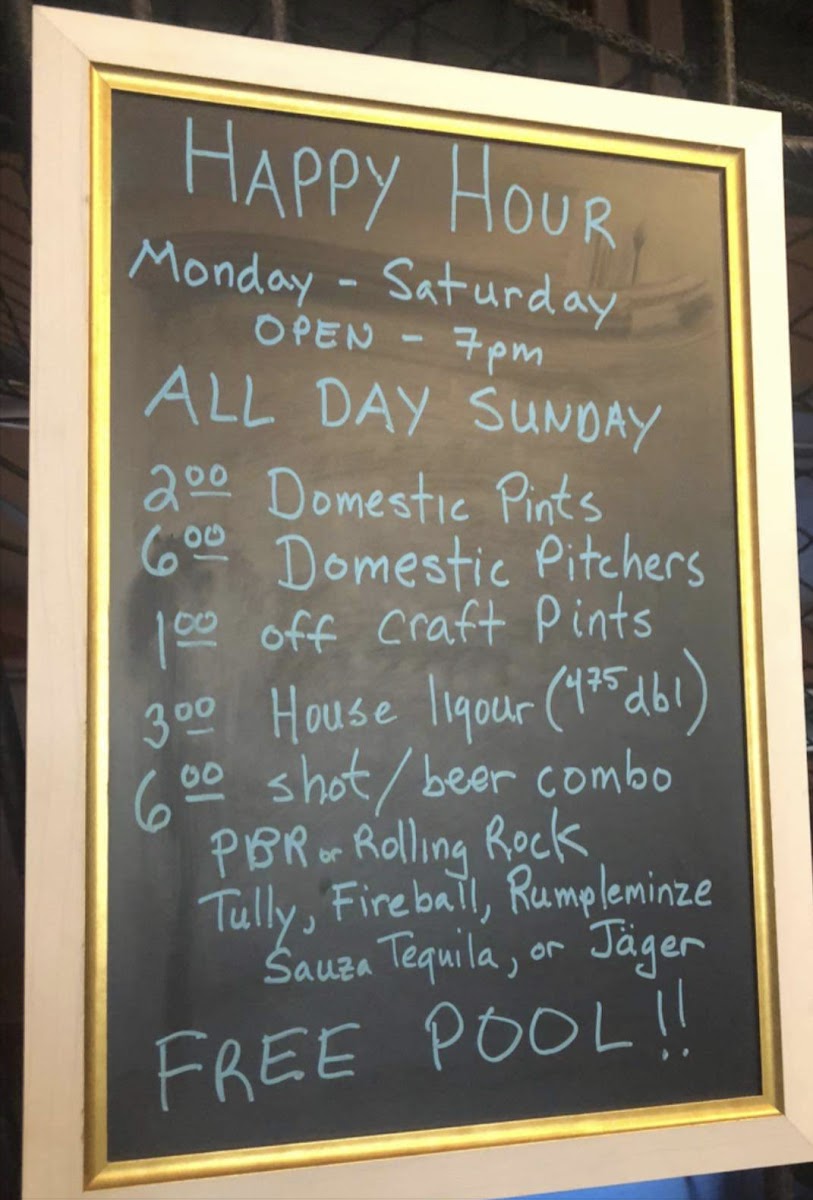 HAPPY HOUR
Monday - Saturday
OPEN - 7pm
ALL DAY SUNDAY
2.00 Domestic Pints
6.00 Domestic Pitchers
1.00 off craft Pints
3.00 House liqour (4.75 dbl)
6.00 shot/beer combo
PBR or Rolling Rock
Tully, Fireball, Rumpleminze
Sauza Tequila, or Jäger
FREE POOL!!